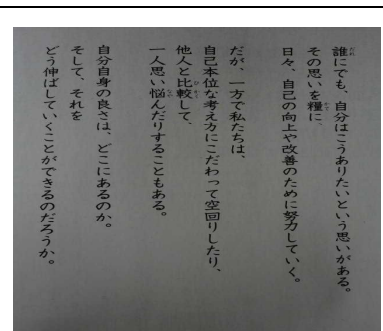 誰にでも、自分はこうありたいという思いがある。
その思いを糧に、
日々、自己の向上や改善のために努力していく。
だが、一方で私たちは、
自己本位な考え方にこだわって空回りしたり、
他人と比較して、
一人思い悩んだりすることもある。
自分自身の良さは、どこにあるのか。
そして、それを
どう伸ばしていくことができるのだろうか。